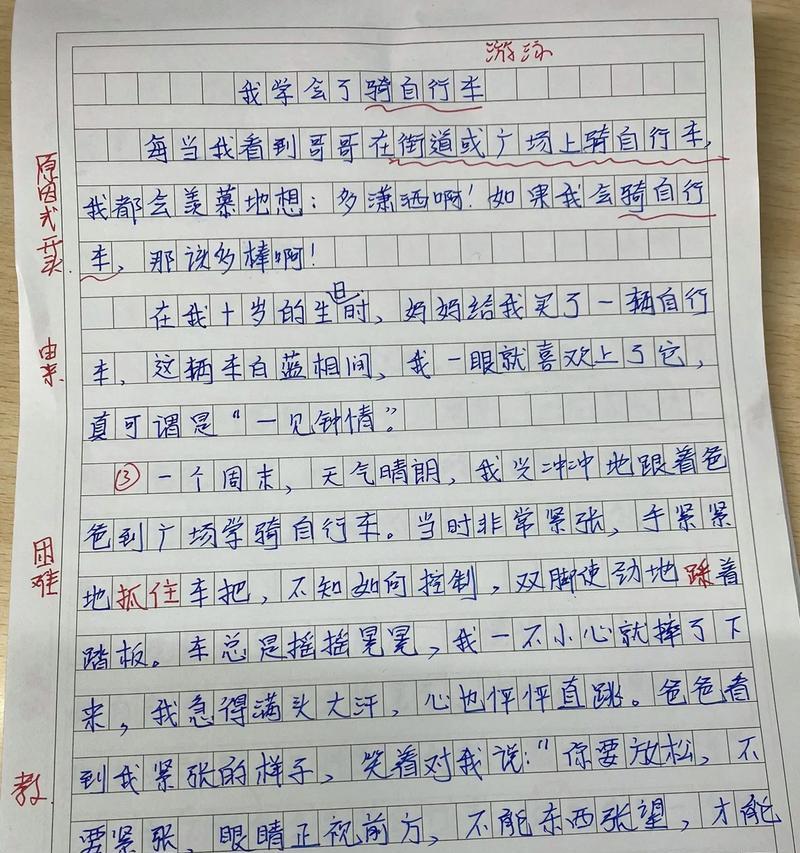 游泳
我学会了骑自行车
每当我看到哥哥在街道或广场上骑自行车,
原因式开头
我都会羡慕地想：多潇洒啊！如果我会骑自行
车，那该多棒啊！
在我十岁的生日时，妈妈给我买了一辆自行
由来
车，这辆车白蓝相间，我一眼就喜欢上了它，
真可谓是“一见钟情”。
③一个周末，天气晴朗，我兴冲冲地跟着爸
爸到广场学骑自行车。当时非常紧张，手紧紧
困难
地抓住车把，不知如何控制，双脚使劲地踩着
踏板。车总是摇摇晃晃，我一不小心就摔了下
来，我急得满头大汗，心也怦怦直跳。爸爸看
到我紧张的样子，笑着对我说：“你要放松，不
教
要紧张，眼睛正视前方，不能东西张望，才能